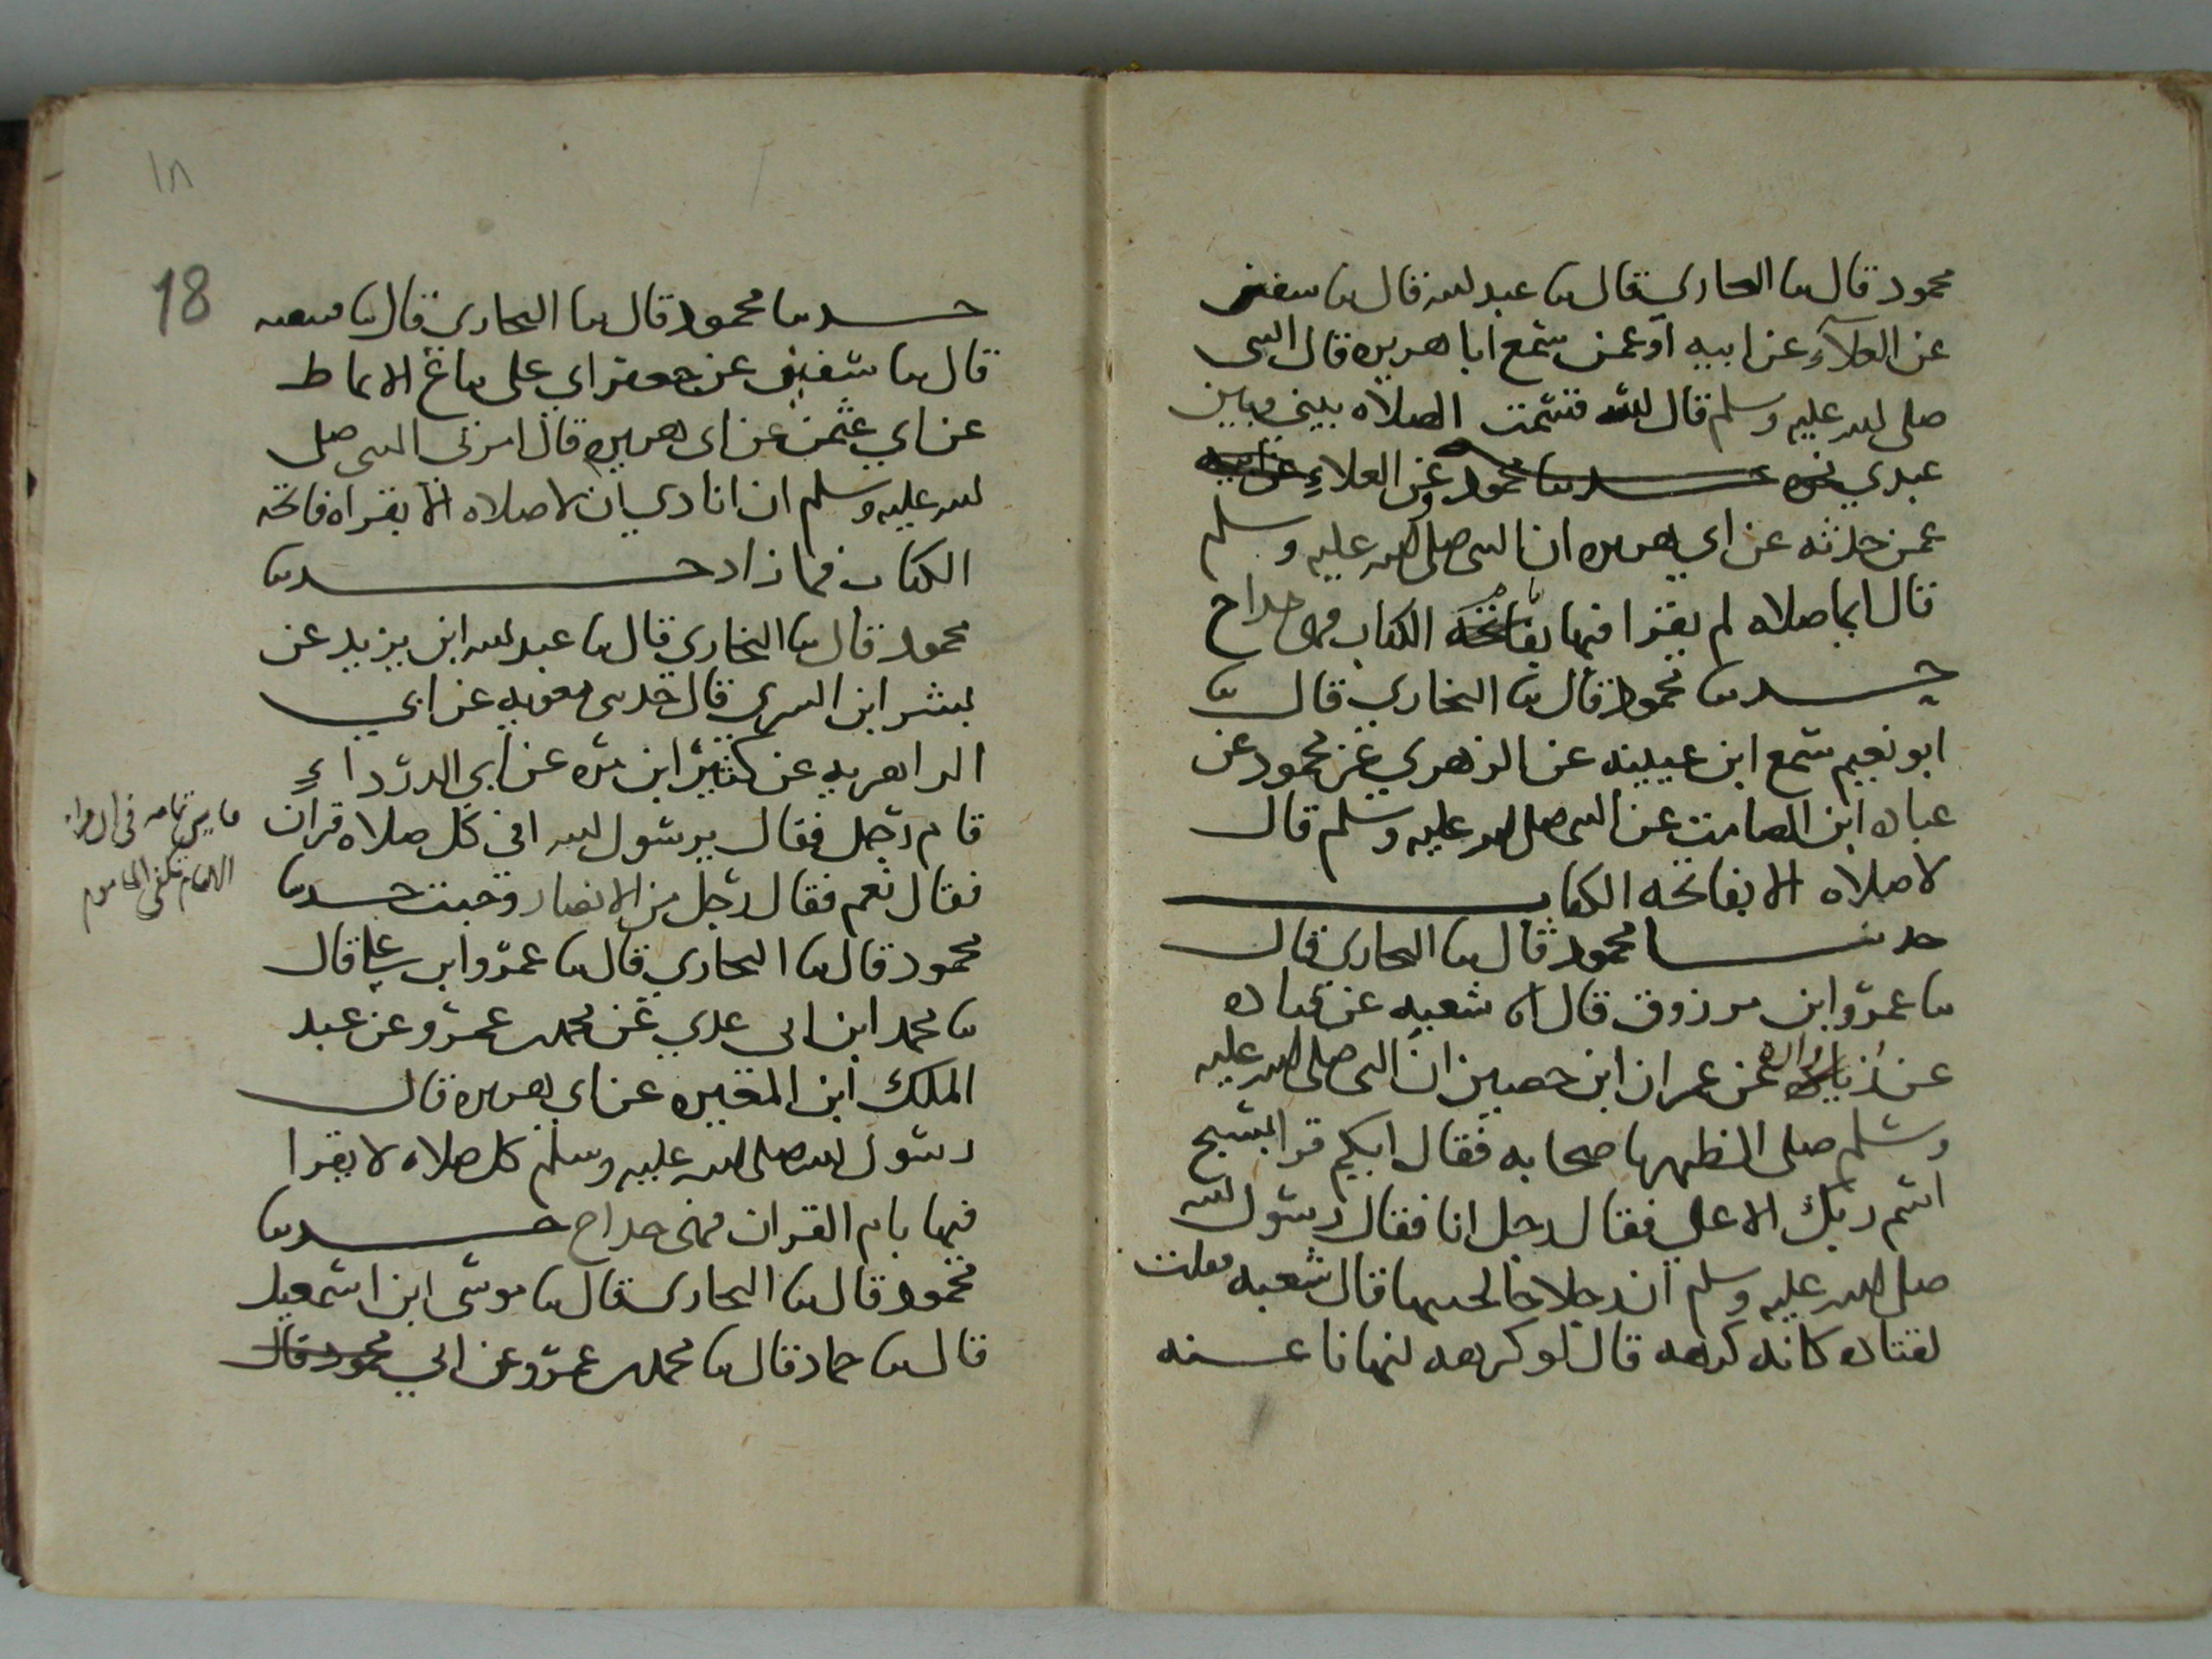 محمود قال سا البخاري قال سا عبد لله قال سا سفين
عن العلاء عن ابيه او عمن سمع ابا هريره قال النبى
صلى لله عليه وسلم قال لله قسمت الصلاه بيني وبين
عبدي حدسا محمود وعن العلاء عن ابيه
عمن حدثه عن ابي هريره ان النبى صلى لله عليه وسلم
قال ايما صلاه لم يقرا فيها بفاتحه الكتاب فهى خداج
حدسا محمود قال سا البخاري قال سا
ابو نعيم سمع ابن عيينه عن الزهري عن محمود عن
عباده ابن الصامت عن النبى صلى لله عليه وسلم قال
لا صلاه الا بفاتحه الكتاب
حدسا محمود قال سا البخاري قال
سا عمرو ابن مرزوق قال اا شعبه عن قتاده
عن زراره عن عمران ابن حصين ان النبى صلى لله عليه
وسلم صلى الظهر باصحابه فقال ايكم قرا بسبح
اسم ربك الاعلى فقال رجل انا فقال رسول لله
صلى لله عليه وسلم ان رجلا خالجنيها قال شعبه فقلت
لقتاده كانه كرهه قال لو كرهه لنهانا عنه
١٨
18
حدسا محمود قال سا البخاري قال سا
قال سا سفين عن جعفر ابي على بياع الانماط
عن ابي عثمن عن ابى هريره قال امرني النبى صلى
لله عليه وسلم ان انادي ان لا صلاه الا بقراه فاتحه
الكتاب فما زاد حدسا
محمود قال سا البخاري قال سا عبد لله ابن يزيد عن
بشر ابن السري قال حدثنى معويه عن ابي
الزاهريه عن كثير ابن مره عن ابي الدرداء
قام رجل فقال يرسول لله افي كل صلاه قران
فقال نعم فقال رجل من الانصار وجبت حدسا
محمود قال سا البخاري قال سا عمرو ابن على قال
سا محمد ابن ابى عدي عن محمد بن عمرو عن عبد
الملك ابن المغيره عن ابي هريره قال
رسول لله صلى لله عليه وسلم كل صلاه لا يقرا
فيها بام القران فهى خداج حدسا
محمود قال سا البخاري قال سا موسى ابن اسمعيل
قال سا حماد قال سا محمد بن عمرو عن ابي محمود قال